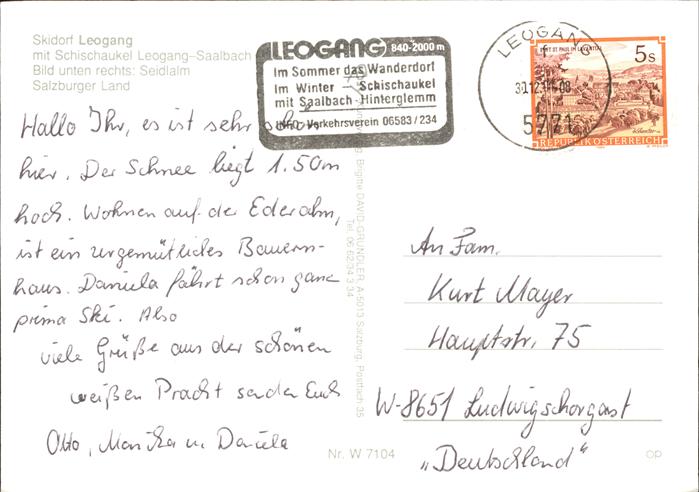 Skidorf Leogang
mit Schischaukel Leogang–Saalbach
Bild unten rechts: Seidlalm
Salzburger Land
LEOGANG 840-2000 m
Im Sommer das Wanderdorf
Im Winter – Schischaukel
mit Saalbach-Hinterglemm
INFO Verkehrsverein 06583/234
LEOGANG
5771
STIFT ST. PAUL IM LAVANTTAL
5 S
REPUBLIK ÖSTERREICH
Hallo Ihr, es ist sehr schön
hier. Der Schnee liegt 1.50m
hoch. Wohnen auf der Ederalm,
ist ein urgemütliches Bauern-
haus. Daniela fährt schon ganz
prima Ski. Also
viele Grüße aus der schönen
weißen Pracht senden Euch
Otto, Marika u. Daniela
Brigitte DAVID-GRÜNDLER, A-5013 Salzburg, Postfach 35
Tel. 06 62/34 3 34
An Fam.
Kurt Mayer
Hauptstr. 75
W-8651 Ludwigschorgast
„Deutschland"
Nr. W 7104
OP